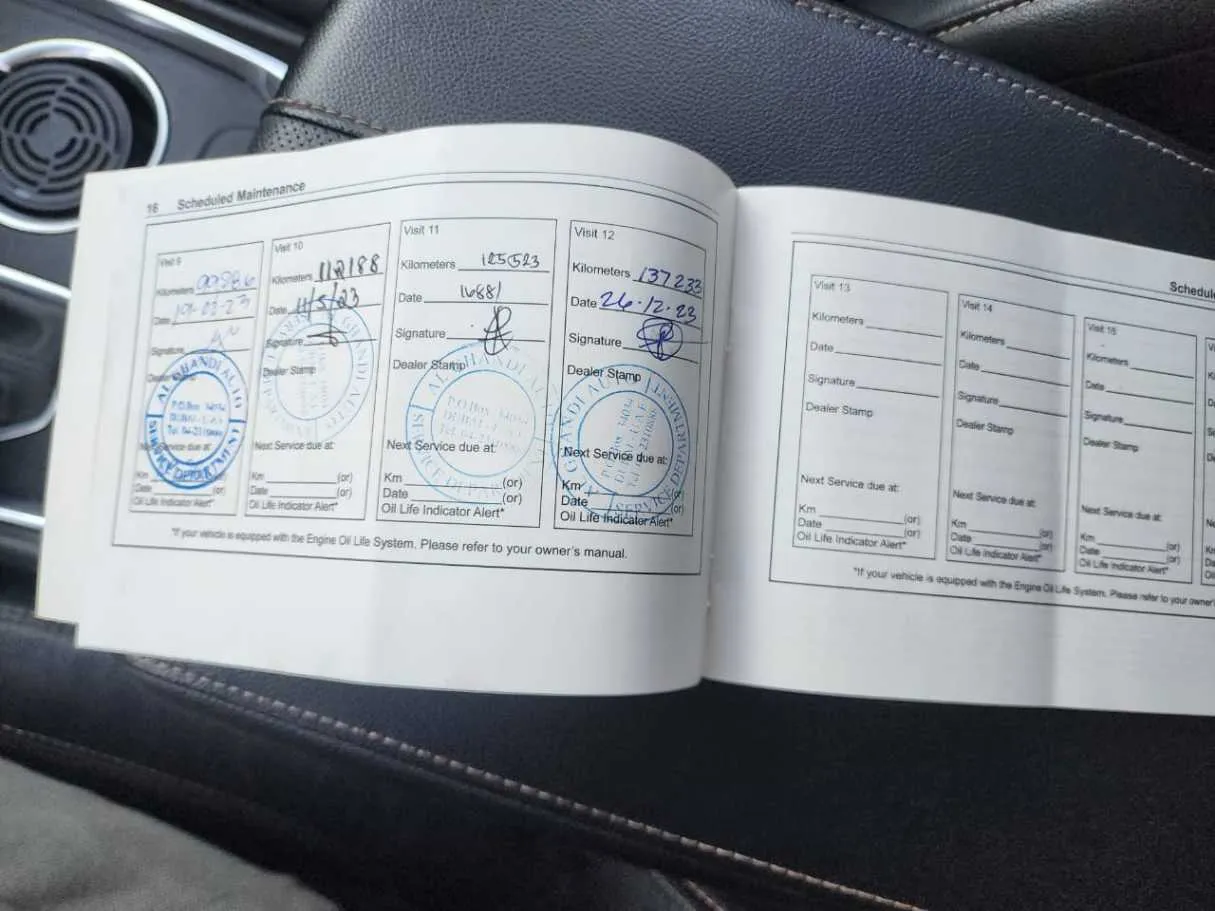 16 Scheduled Maintenance
Visit 9
Kilometers
Date
Signature
Dealer Stamp
AL GHANDI AUTO
P.O.Box 34034
DUBAI - U.A.E
SERVICE DEPARTMENT
Next Service due at:
Km (or)
Date (or)
Oil Life Indicator Alert*
Visit 10
Kilometers 112188
Date 11/5/23
Signature
Dealer Stamp
Next Service due at:
Km (or)
Date (or)
Oil Life Indicator Alert*
Visit 11
Kilometers 125523
Date 16881
Signature
Dealer Stamp
AL GHANDI AUTO
P.O.Box 34034
DUBAI - U.A.E
SERVICE DEPARTMENT
Next Service due at:
Km (or)
Date (or)
Oil Life Indicator Alert*
Visit 12
Kilometers 137233
Date 26.12.23
Signature
Dealer Stamp
GHANDI AUTO
P.O.Box 34034
DUBAI - U.A.E
SERVICE DEPARTMENT
Next Service due at:
Km (or)
Date (or)
Oil Life Indicator Alert*
*If your vehicle is equipped with the Engine Oil Life System. Please refer to your owner's manual.
Visit 13
Kilometers
Date
Signature
Dealer Stamp
Next Service due at:
Km (or)
Date (or)
Oil Life Indicator Alert*
Visit 14
Kilometers
Date
Signature
Dealer Stamp
Next Service due at:
Km (or)
Date (or)
Oil Life Indicator Alert*
Visit 15
Kilometers
Date
Signature
Dealer Stamp
Next Service due at:
Km (or)
Date (or)
Oil Life Indicator Alert*
*If your vehicle is equipped with the Engine Oil Life System. Please refer to your owner's